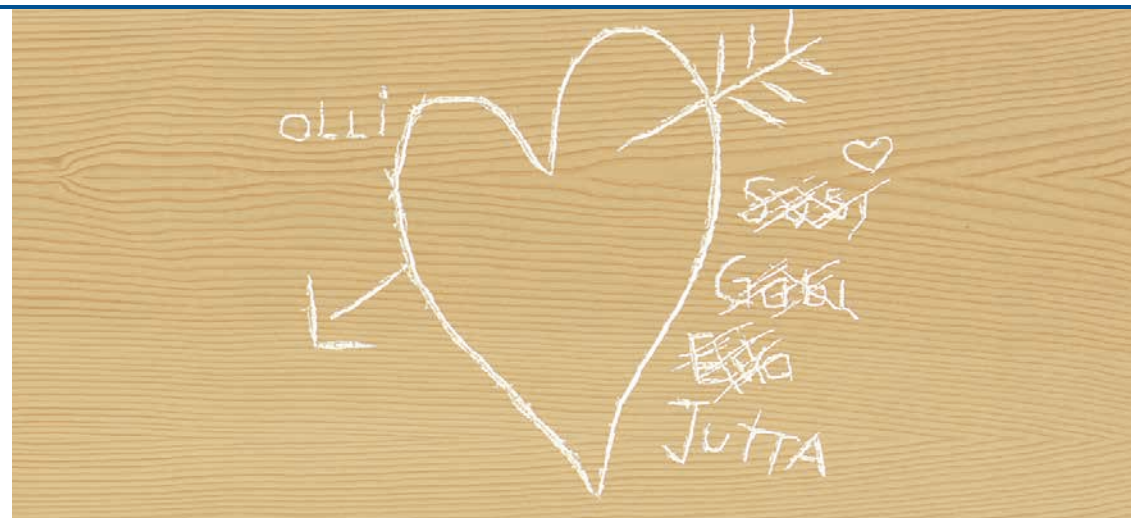 oLLi
Susi
Gabi
JuTTA